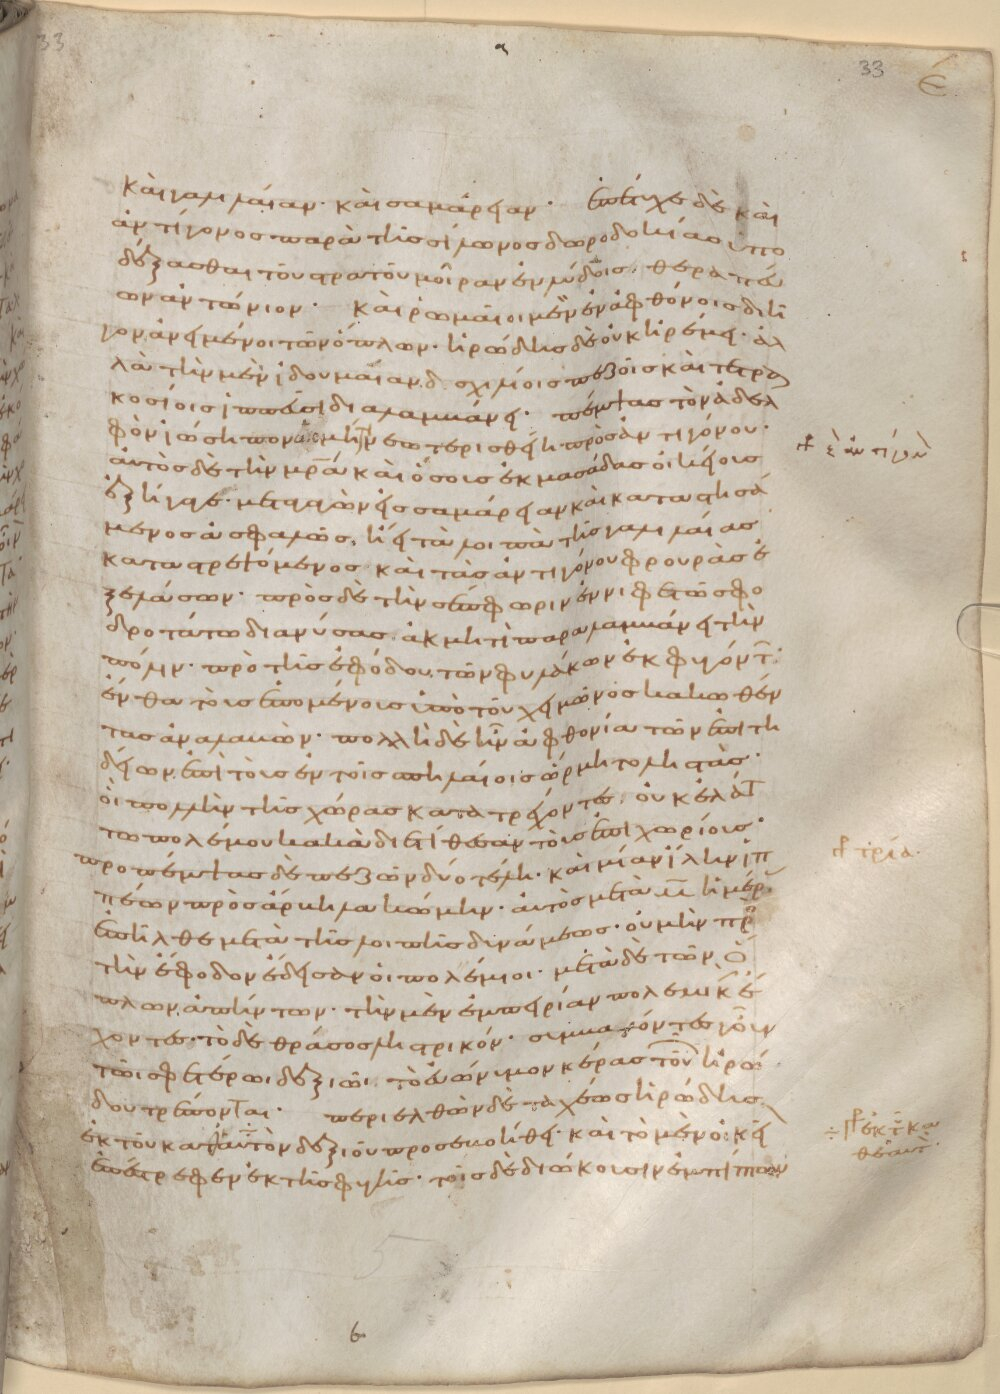 καὶ γαλιλαίαν· καὶ σαμάρειαν· ἐπέτυχε δὲ καὶ
ἀντίγονος παρὰ τῆς σίλωνος δωροδοκίας ὑπο
δέξασθαι τοῦ στρατοῦ μοῖραν ἐν λύδδοις· θεραπεύ
ων ἀντώνιον· καὶ ῥωμαῖοι μὲν ἐν ἀφθόνοις διῆ
γον ἀνειμένοι τῶν ὅπλων· ἡρώδης δὲ οὐκ ἠρέμει· ἀλ
λὰ τὴν μὲν ἰδουμαίαν δισχιλίοις πεζοῖς καὶ τετρα
κοσίοις ἱππεῦσι διαλαμβάνει· πέμψας τὸν ἀδελ
φὸν ἰώσηπον ὡς μήτι νεωτερισθείη πρὸς ἀντιγόνου·
αὐτὸς δὲ τὴν μρ̅α καὶ ὅσους ἐκ μασάδας οἰκείους
ἐξήγαγε· μεταγαγὼν εἰς σαμάρειαν καὶ καταστησά
μενος ἀσφαλῶς. ἤει τὰ λοιπὰ τῆς γαλιλαίας
καταστρεψόμενος καὶ τὰς ἀντιγόνου φρουρὰς ἐ
ξελάσων· πρὸς δὲ τὴν σέπφωριν ἐν νιφετῶ σφο
δροτάτω διανύσας. ἀκμητὶ παραλαμβάνει τὴν
πόλιν· πρὸ τῆς ἐφόδου τῶν φυλάκων ἐκφυγόντ·
ἔνθα τοὺς ἑπομένους ὑπὸ τοῦ χειμῶνος κακωθέν
τας ἀναλαβών· πολλὴ δὲ ἦν ἀφθονία τῶν ἐπιτη
δείων. ἐπὶ τοὺς ἐν τοῖς σπηλαίοις ὥρμητο ληστάς·
οἳ πολλὴν τῆς χώρας κατατρέχοντες. οὐκ ἐλάττ
τω πολέμου κακὰ διετίθεσαν τοὺς ἐπιχωρίους·
προπέμψας δὲ πεζῶν δύο τέλη· καὶ μίαν ἴλην ἱπ
πέων πρὸς ἄρβηλα κώμην· αὐτὸς μετὰ μ̅ ἡμέρ
ἐπῆλθε μετὰ τῆς λοιπῆς δυνάμεως· οὐ μὴν πρὸ
τὴν ἔφοδον ἔδεισαν οἱ πολέμιοι· μετὰ δὲ τῶν ὅ
πλων ἀπήντων· τὴν μὲν ἐμπειρίαν πολεμικ ἔ
χοντες· τὸ δὲ θράσος ληστρικόν· συμβαλόντες γοῦν
τῶι σφετέρωι δεξιῶι. τὸ εὐώνυμον κέρας τῶν ἡρώ
δου τρέπονται· περιελθὼν δὲ ταχέως ἡρώδης
ἐκ τοῦ κατ' αὐτὸν δεξιοῦ προσεβοήθει· καὶ τὸ μὲν οἰκεῖ
ἐπέστρεφεν ἐκ τῆς φυγῆς· τοῖς δὲ διώκουσιν ἐμπίπτων
33
33
ε
ἀντίγον
τρία·
ἐκ τ κα
θεαυτ